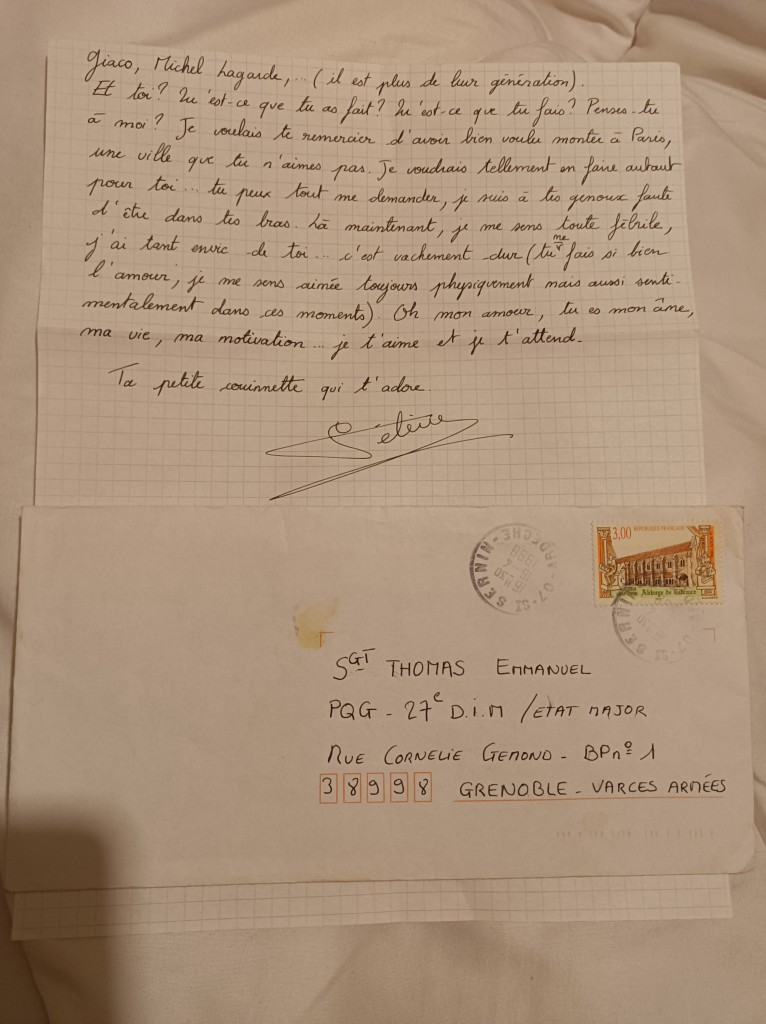 Giaco, Michel Lagarde,... (il est plus de leur génération).
Et toi? Qu'est-ce que tu as fait? Qu'est-ce que tu fais? Penses-tu
à moi? Je voulais te remercier d'avoir bien voulu monter à Paris,
une ville que tu n'aimes pas. Je voudrais tellement en faire autant
pour toi... tu peux tout me demander, je suis à tes genoux faute
d'être dans tes bras. Là maintenant, je me sens toute fébrile,
j'ai tant envie de toi... c'est vachement dur (tu me fais si bien
l'amour, je me sens aimée toujours physiquement mais aussi senti-
mentalement dans ces moments). Oh mon amour, tu es mon âme,
ma vie, ma motivation... je t'aime et je t'attend.
Ta petite couinnette qui t'adore.
3,00 REPUBLIQUE FRANÇAISE
Abbaye de
07-ST SERNIN-ARDECHE
SGT THOMAS EMMANUEL
PQG - 27e D.i.M / ETAT MAJOR
RUE CORNELIE GEMOND - BP nº 1
38998 GRENOBLE - VARCES ARMÉES